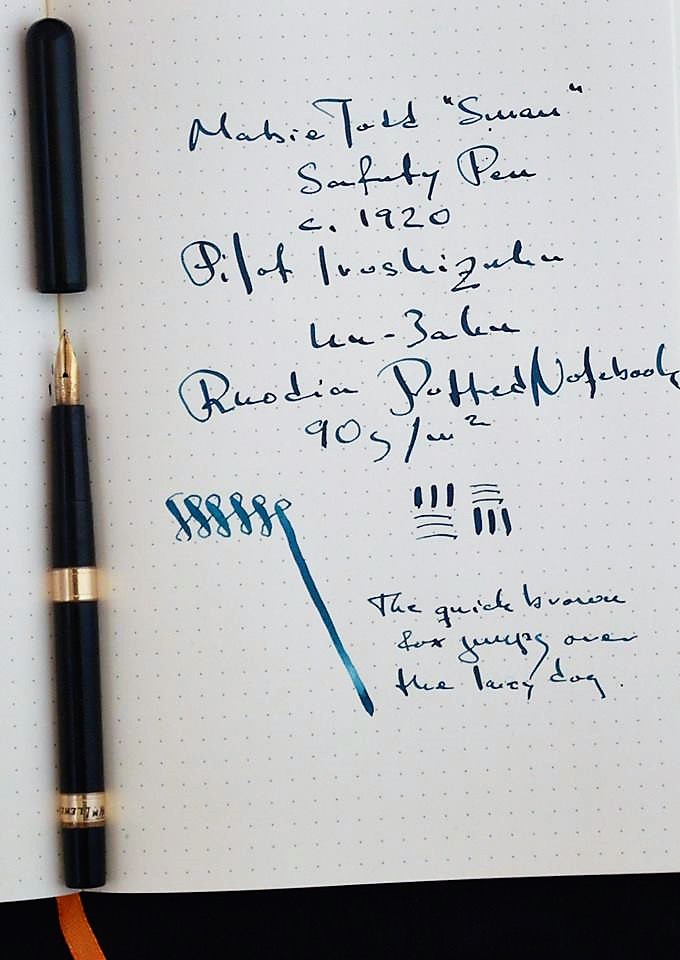 Mabie Todd "Swan"
Safety Pen
c. 1920
Pilot Iroshizuku
ku-Zaku
Rhodia Dotted Notebook
90g/m²
The quick brown
fox jumps over
the lazy dog.